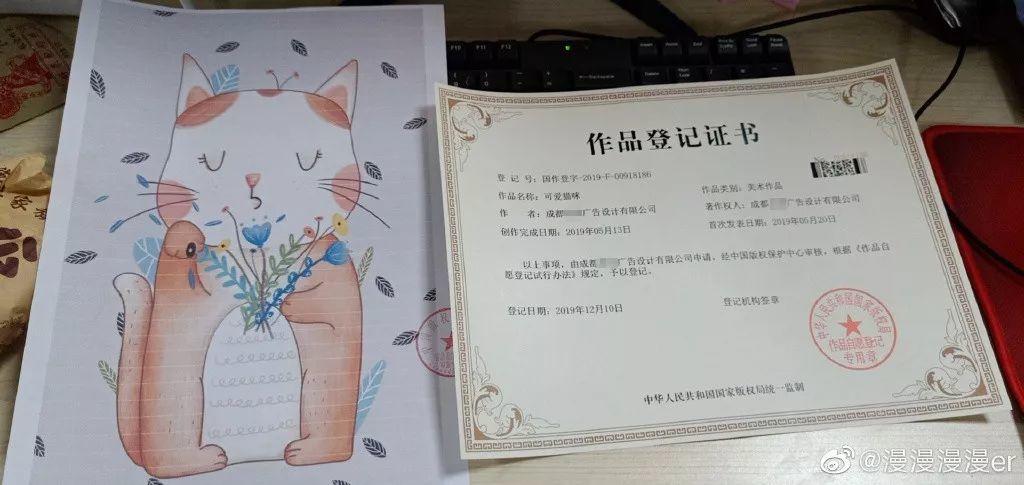 F10 F11 F12
Insert Home
Delete End
Backspace
作品登记证书
登 记 号：国作登字-2019-F-00918186
作品名称：可爱猫咪
作品类别：美术作品
作 者：成都 广告设计有限公司
著作权人：成都 广告设计有限公司
创作完成日期：2019年05月13日
首次发表日期：2019年05月20日
以上事项，由成都 广告设计有限公司申请，经中国版权保护中心审核，根据《作品自
愿登记试行办法》规定，予以登记。
登记日期：2019年12月10日
登记机构签章
中华人民共和国国家版权局
作品自愿登记
专用章
中华人民共和国国家版权局统一监制
@漫漫漫漫er